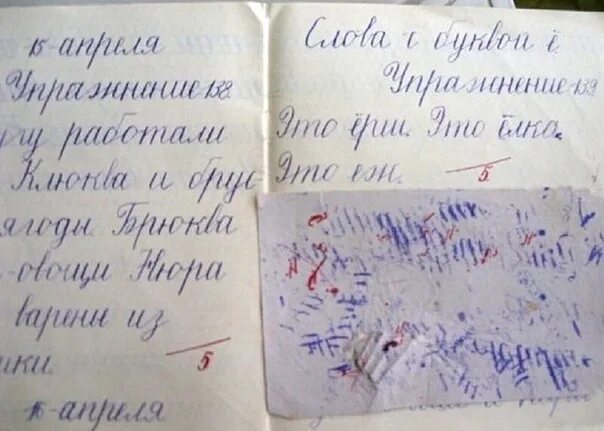 15-апреля
Упражнение 138
работали
Клюква и брус-
ягоды. Брюква
-овощи Нюра
варенье из
5
16-апреля
Слова с буквой ё
Упражнение 139
Это ёрш. Это ёлка.
Это еж.
5